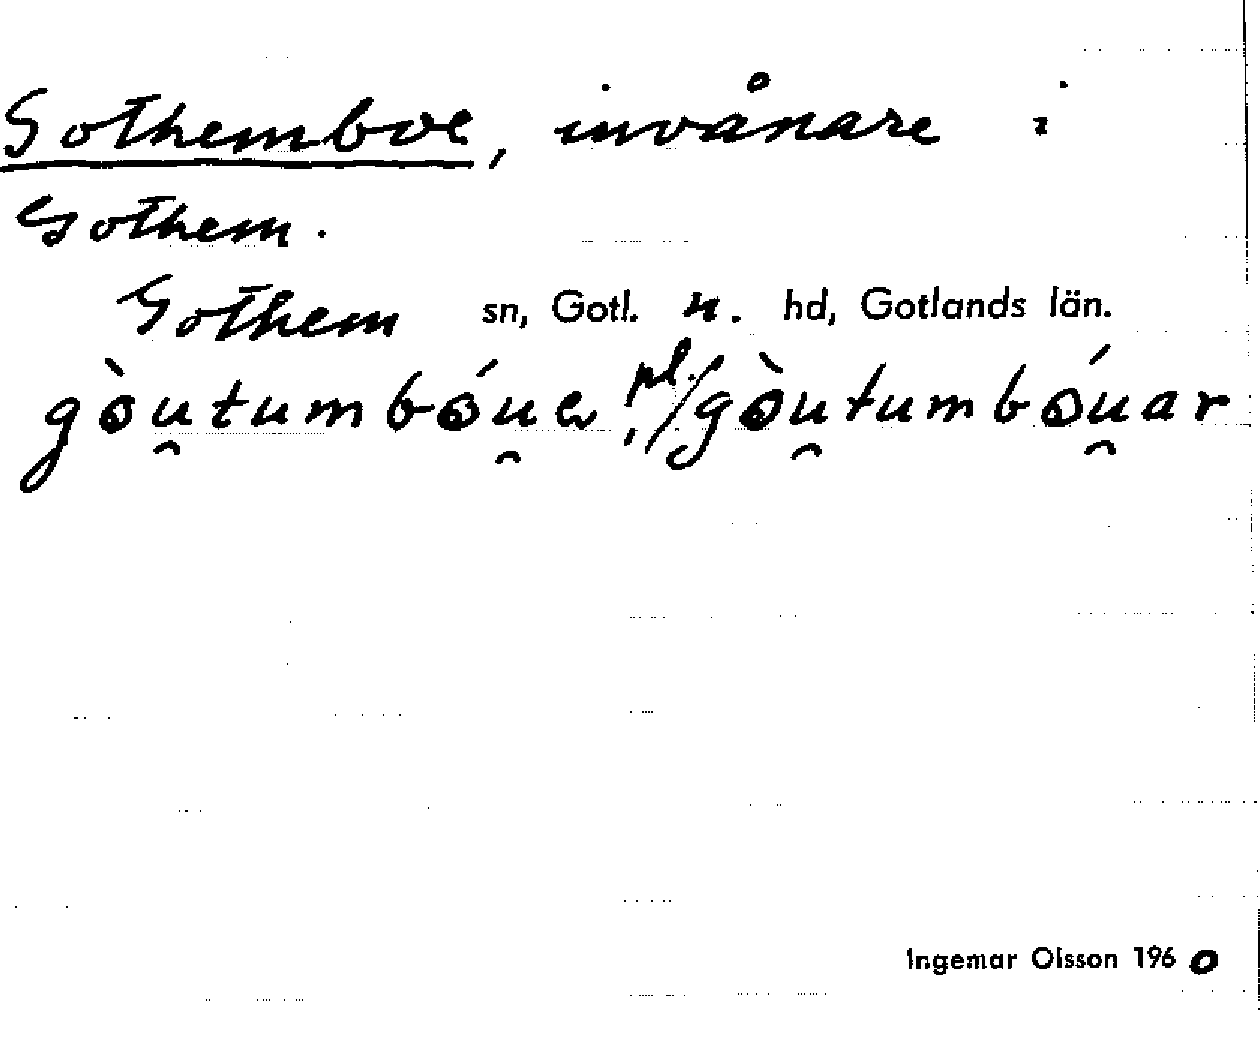 Gothemboe, invånare i
Gothem.
Gothem sn, Gotl. n. hd, Gotlands län.
gòu̯tumbóu̯e, pl. gòu̯tumbóu̯ar
Ingemar Olsson 1960